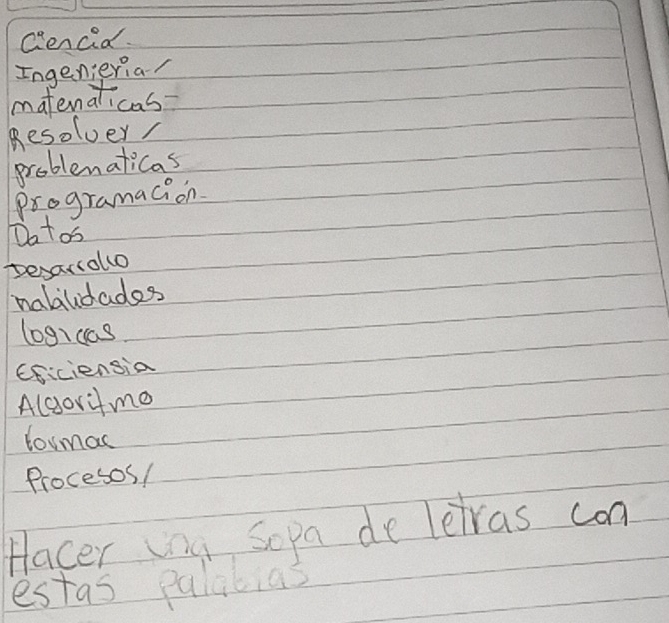 Ciencia.
Ingenieria/
matematicas-
Resolver/
problematicas
programación-
Datos
Desarrollo
habilidades
logicas
Eficiensia
Algoritmo
formas
Procesos/
Hacer una sopa de letras con
estas palabras